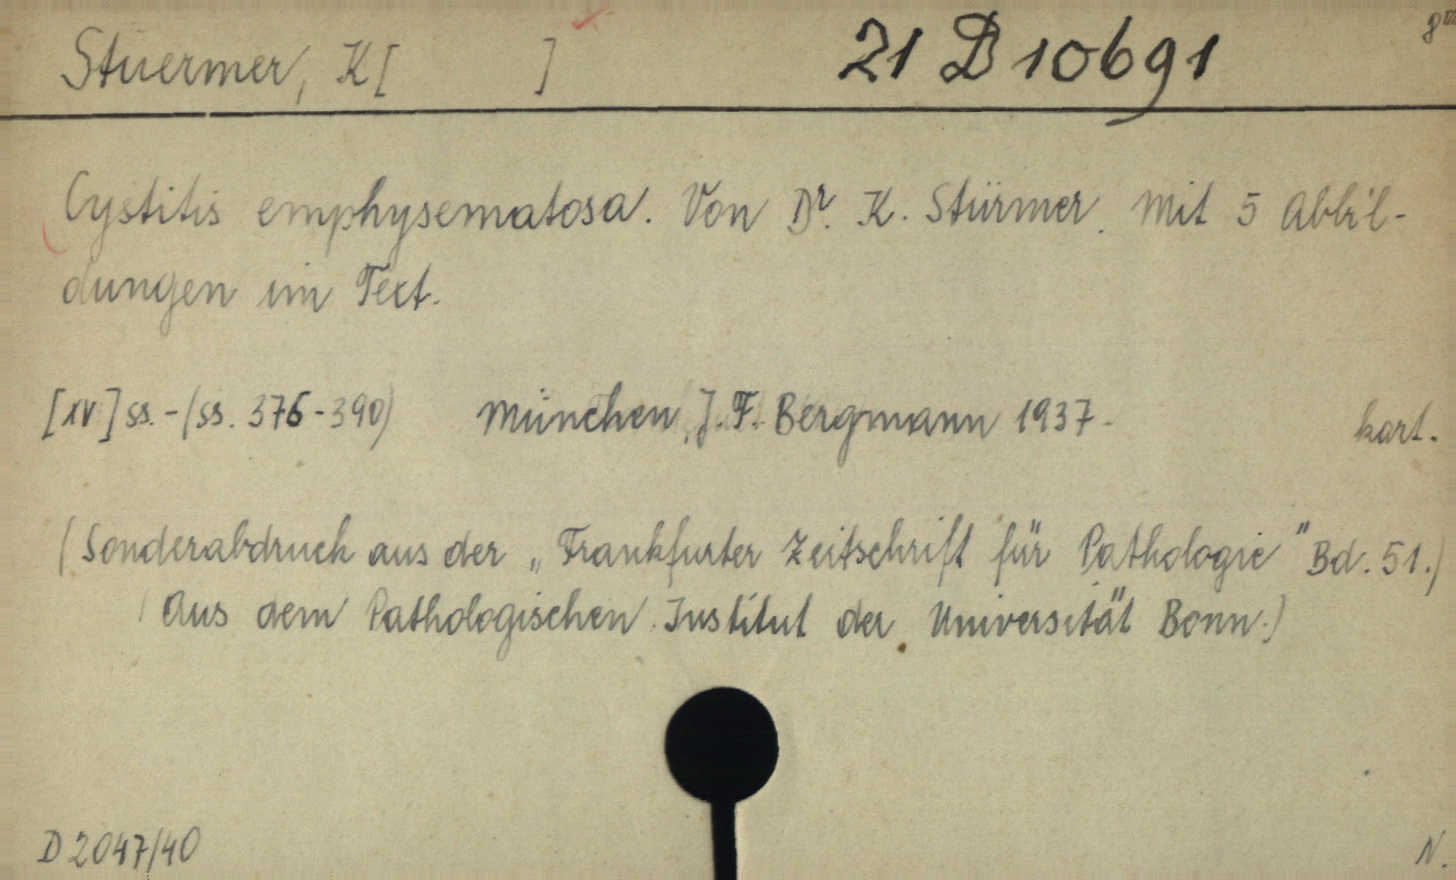 Stuermer, K[ ] 21 D 10691 8°
Cystitis emphysematosa. Von Dr. K. Stürmer. Mit 5 Abbil-
dungen im Text.
[XV] ss. - (ss. 376-390) München, J. F. Bergmann 1937. kart.
(Sonderabdruck aus der „Frankfurter Zeitschrift für Pathologie" Bd. 51.)
(Aus dem Pathologischen Institut der Universität Bonn.)
D 2047/40 N.